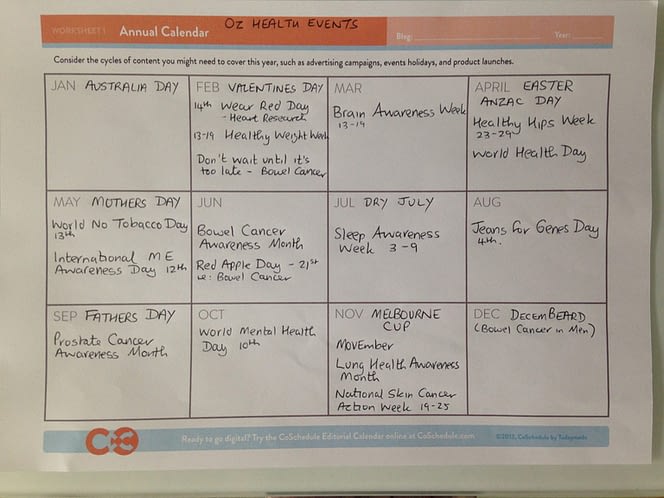 WORKSHEET 1 Annual Calendar OZ HEALTH EVENTS Blog: Year:
Consider the cycles of content you might need to cover this year, such as advertising campaigns, events holidays, and product launches.
JAN AUSTRALIA DAY
FEB VALENTINES DAY
14th Wear Red Day
- Heart Research
13-19 Healthy Weight Week
Don't wait until it's
too late - Bowel Cancer
MAR
Brain Awareness Week
13-19
APRIL EASTER
ANZAC DAY
Healthy Hips Week
23-29
World Health Day
MAY MOTHERS DAY
World No Tobacco Day
13th
International ME
Awareness Day 12th
JUN
Bowel Cancer
Awareness Month
Red Apple Day - 21st
re: Bowel Cancer
JUL DRY JULY
Sleep Awareness
Week 3-9
AUG
Jeans for Genes Day
4th.
SEP FATHERS DAY
Prostate Cancer
Awareness Month
OCT
World Mental Health
Day 10th
NOV MELBOURNE
CUP
MOVEmber
Lung Health Awareness
Month
National Skin Cancer
Action Week 19-25
DEC DECEMBEARD
(Bowel Cancer in Men)
Ready to go digital? Try the CoSchedule Editorial Calendar online at CoSchedule.com ©2013, CoSchedule by Todaymade